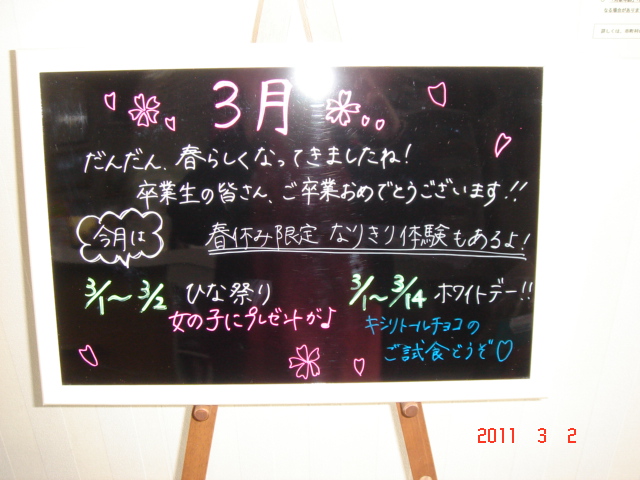 3月
だんだん、春らしくなってきましたね!
卒業生の皆さん、ご卒業おめでとうございます!!
今月は
春休み限定 なりきり体験もあるよ!
3/1～3/2 ひな祭り
女の子にプレゼントが♪
3/1～3/14 ホワイトデー!!
キシリトールチョコの
ご試食どうぞ♡
2011 3 2